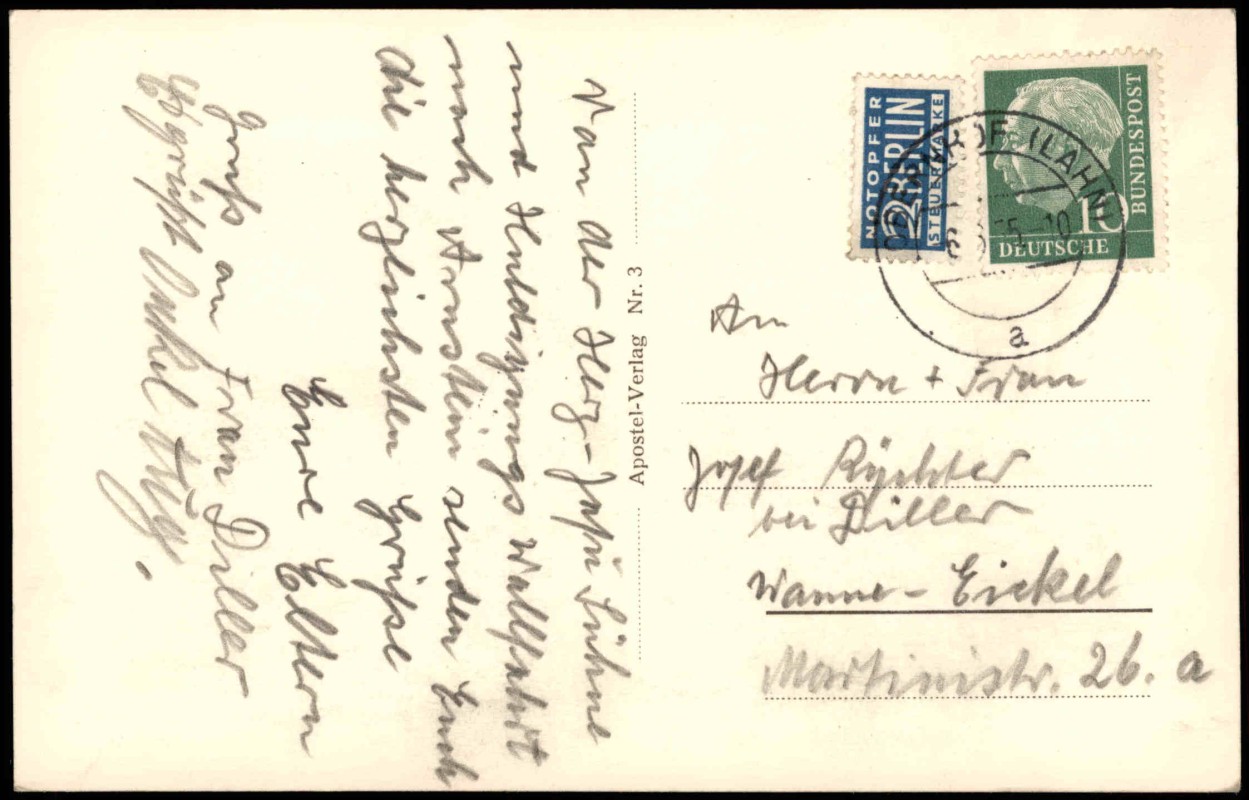 Von der Herz-Jesu Sühne
und Huldigungs wallfahrt
nach Arnstein senden Euch
die herzlichsten Grüsse
Eure Eltern
Gruß an Frau Diller
Onkel
Apostel-Verlag Nr. 3
NOTOPFER
2 BERLIN
STEUERMARKE
DEUTSCHE
BUNDESPOST
10
OBERNHOF (LAHN)
55-10
a
An
Herrn + Frau
Josef Rychter
bei Diller
Wanne-Eickel
Martinistr. 26. a